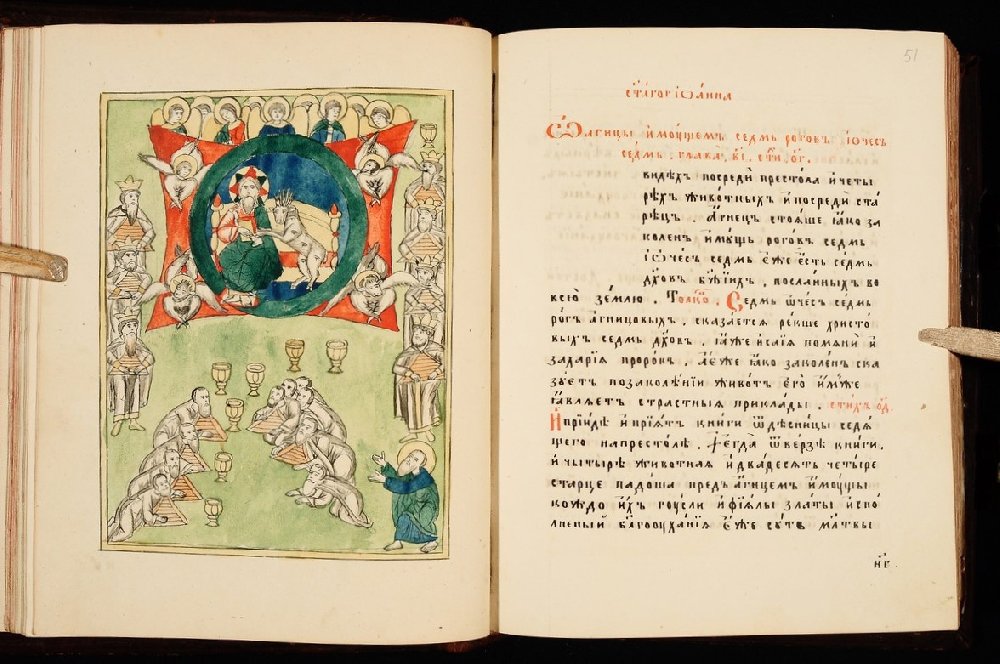 51
ст҃а́гоꙋ іѡа́нна
Ѡ а҆́гнцы и҆мꙋ́щемъ се́дмь рогѡ́въ и҆ ѻ҆че́съ
се́дмь. глава̀. в҃і. сти́хъ. ѻ҃г.
видѣхъ посредѝ престо́ла и҆ четы
рехъ живо́тныхъ и҆ посредѝ ста
рецъ. а҆́гнецъ стоя́ше ꙗ҆́кѡ за
коле́нъ и҆мꙋ́щь рого́въ се́дмь
и҆ ѻ҆че́съ се́дмь є҆́же є҆́сть се́дмь
дх҃о́въ бж҃їихъ, посла́нныхъ во
всю̀ зе́млю. Толко. Се́дмь ѻ҆че́съ се́дмь
ро́гъ а҆́гнцовыхъ, сказꙋ́ется ре́кше христо
выхъ се́дмь дх҃о́въ. ꙗ҆́же и҆са́їа помянꙋ̀ и҆
заха́рїа проро́къ. а҆ є҆́же ꙗ҆́кѡ заколе́нъ ска
зꙋ́етъ по заколе́нїи живо́тъ є҆гѡ̀ и҆́мꙋже
ꙗ҆вля́етъ стра́стныя прикла́ды. сти́хъ ѻ҃д.
И҆ прїи́де и҆ прїя́тъ кни́ги ѿ десни́цы седя́
щего на престо́ле. и҆ є҆гда̀ ѿве́рзе кни́ги.
и҆ четы́ре живо́тная и҆ два́десять четы́ре
ста́рце падо́ша предъ а҆́гнцемъ и҆мꙋ́щы
ко́ждо и҆́хъ гꙋ́сли и҆ фїя́лы зла́ты и҆спо
лнены̀ бл҃гоꙋха́нїя є҆́же сꙋ́ть мл҃твы
н҃г.